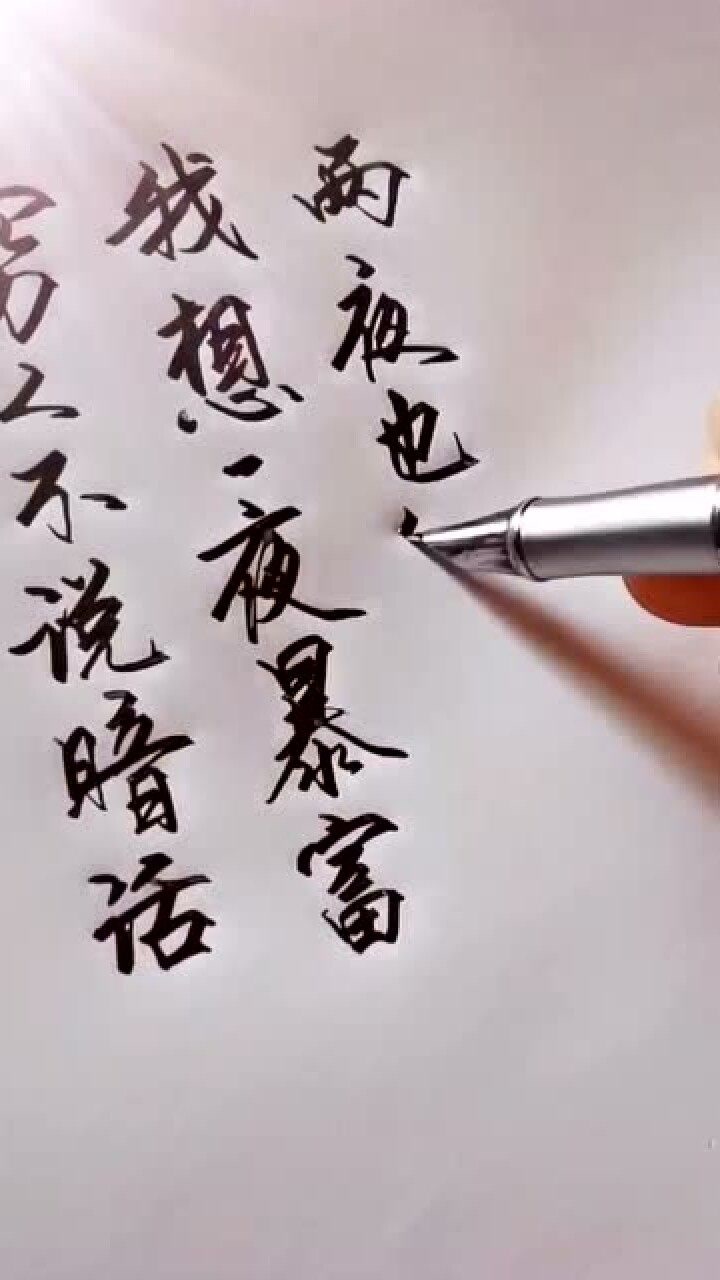 穷人不说暗话
我想一夜暴富
两夜也